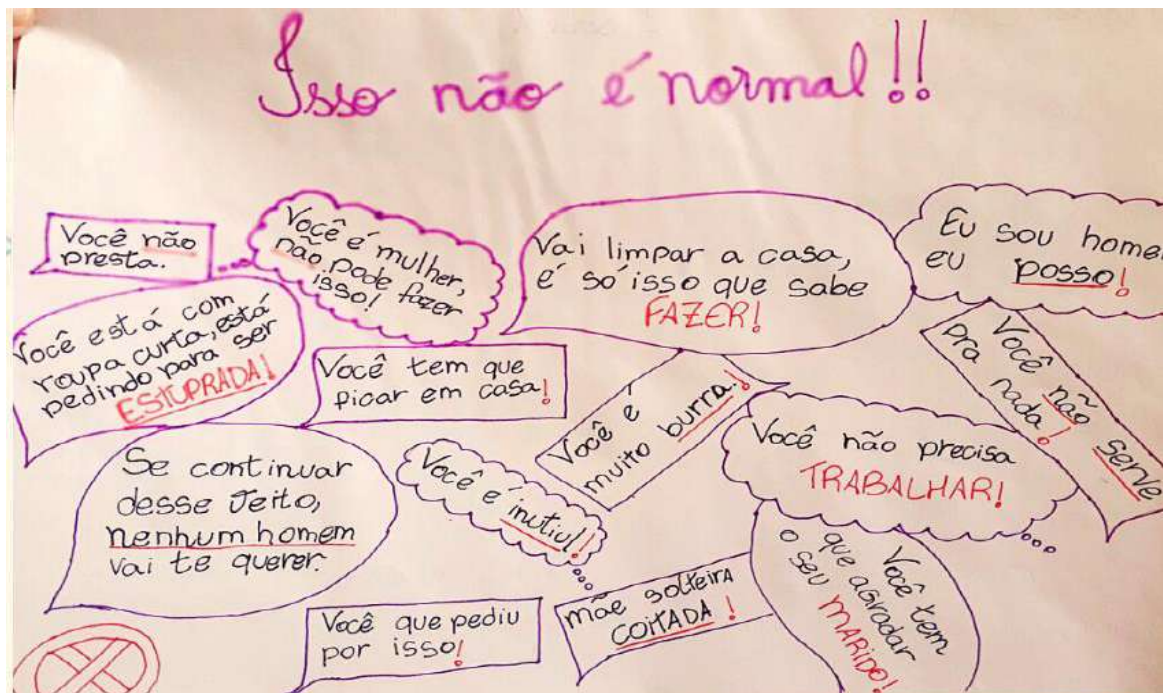 Isso não é normal!!
Você não
presta.
Você é mulher,
não pode fazer
isso!
Vai limpar a casa,
é só isso que sabe
FAZER!
Eu sou home
eu posso!
Você está com
roupa curta, está
pedindo para ser
ESTUPRADA!
Você tem que
ficar em casa!
Você é
muito burra!
Você não serve
pra nada!
Você não precisa
TRABALHAR!
Se continuar
desse Jeito,
nenhum homem
vai te querer.
Você é inutiul!
Você que pediu
por isso!
mãe solteira
COITADA!
Você tem
que agradar
o seu MARIDO!